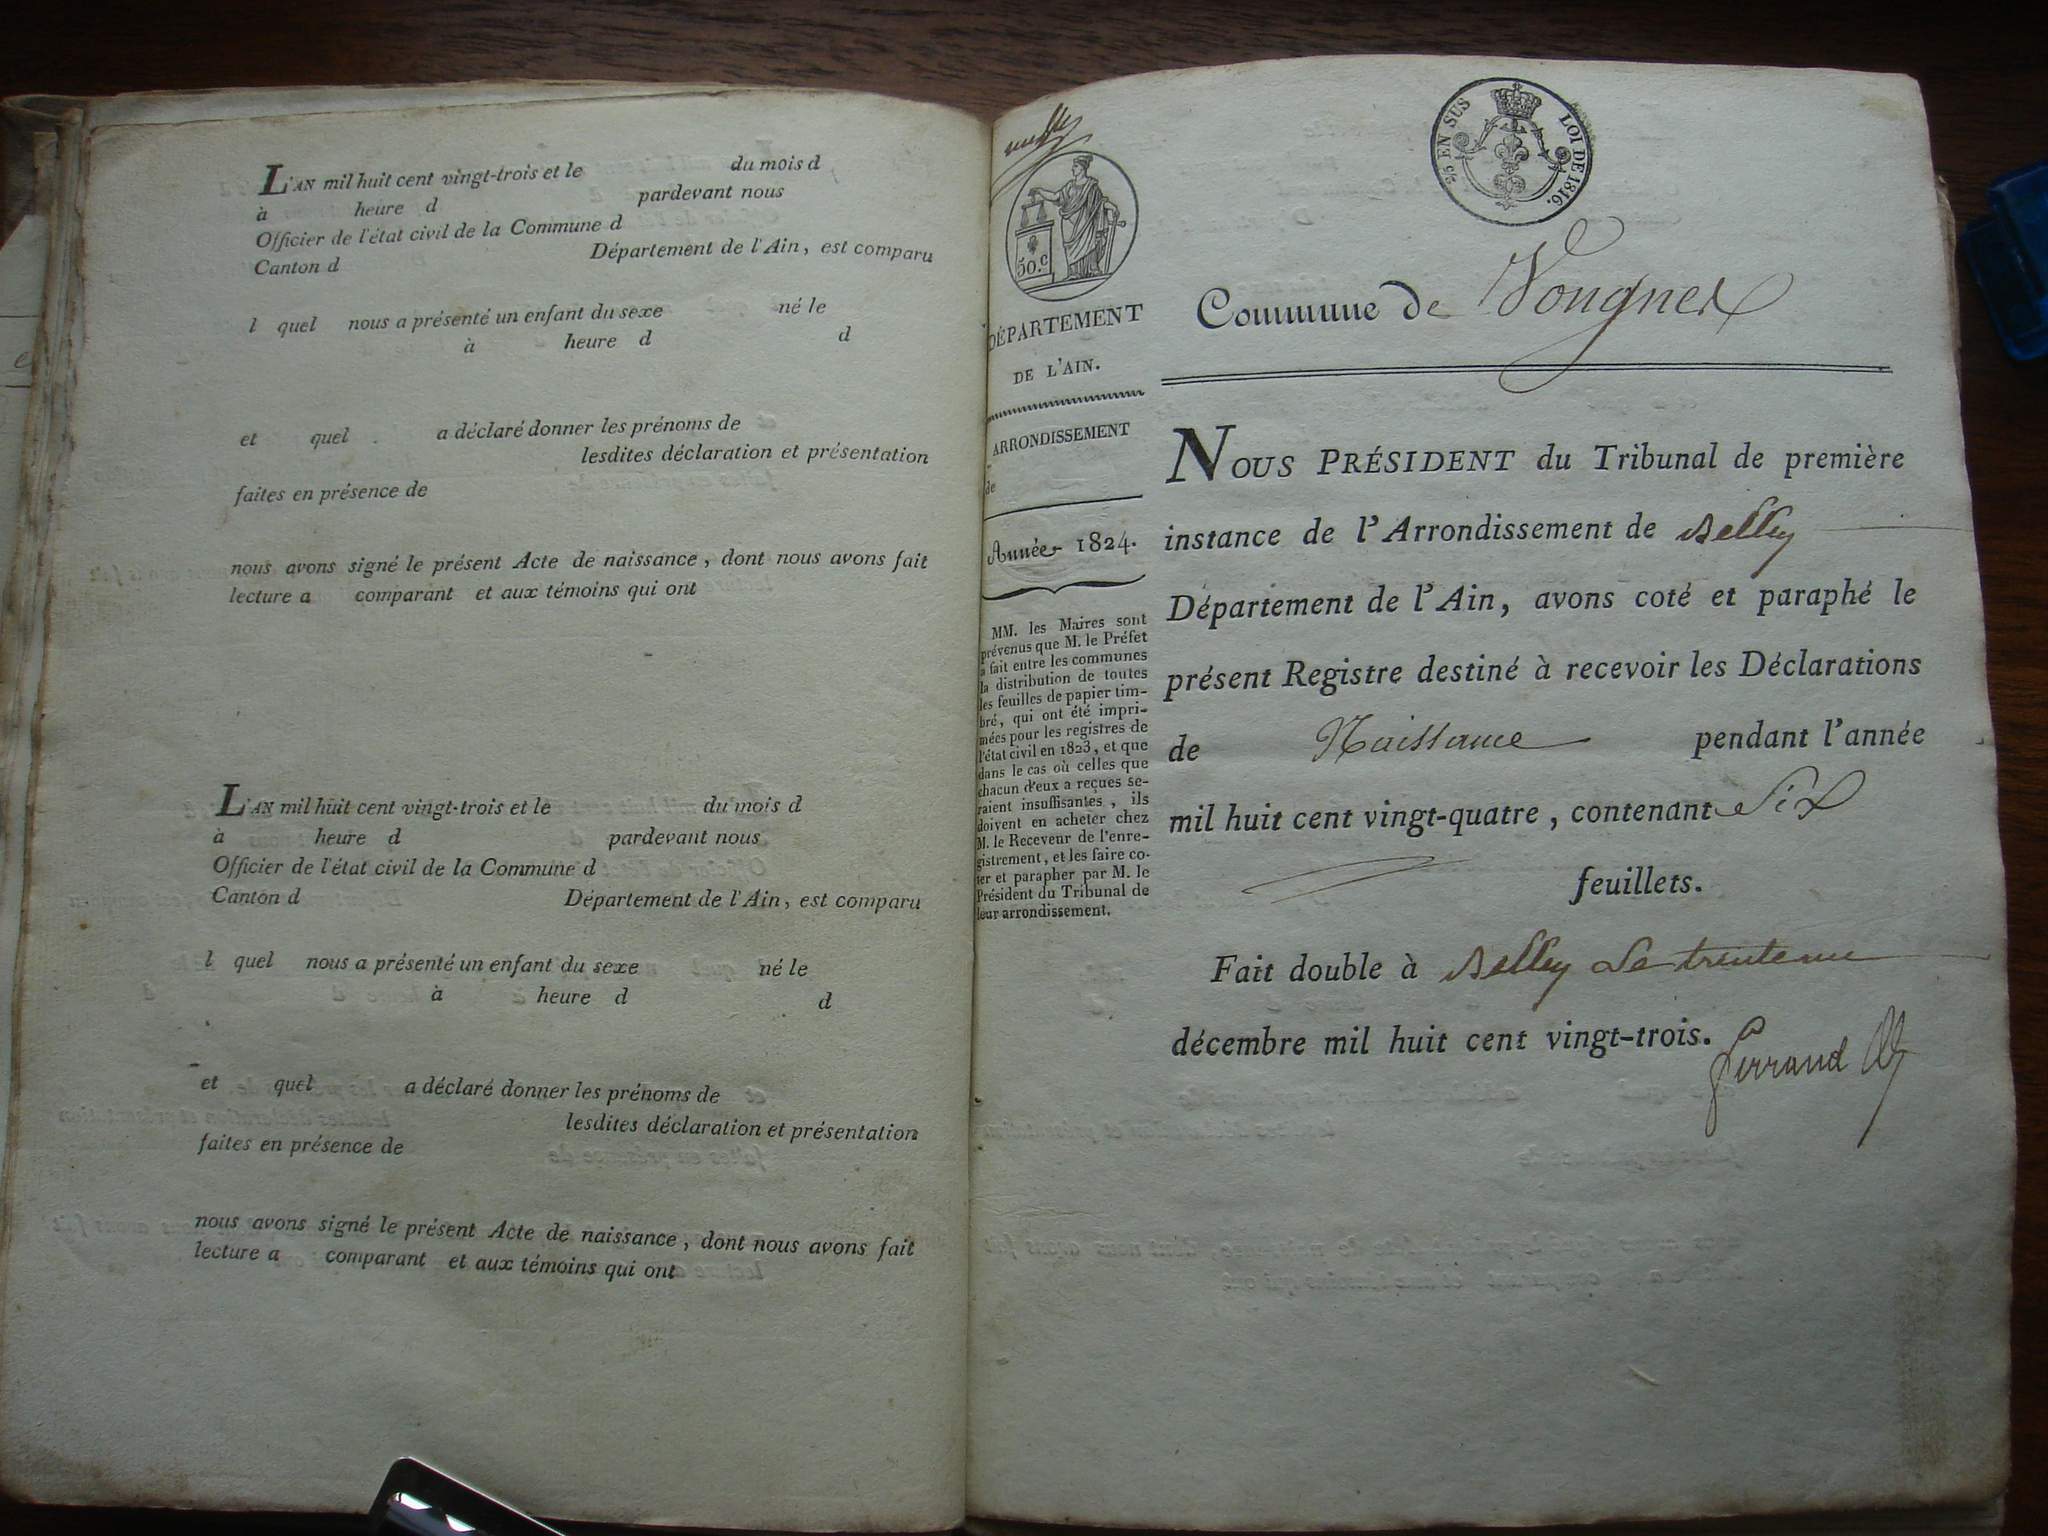 L'AN mil huit cent vingt-trois et le du mois d
à heure d pardevant nous
Officier de l'état civil de la Commune d
Canton d Département de l'Ain, est comparu
l quel nous a présenté un enfant du sexe né le
à heure d d
et quel a déclaré donner les prénoms de
lesdites déclaration et présentation
faites en présence de
nous avons signé le présent Acte de naissance, dont nous avons fait
lecture a comparant et aux témoins qui ont
L'AN mil huit cent vingt-trois et le du mois d
à heure d pardevant nous
Officier de l'état civil de la Commune d
Canton d Département de l'Ain, est comparu
l quel nous a présenté un enfant du sexe né le
à heure d d
et quel a déclaré donner les prénoms de
lesdites déclaration et présentation
faites en présence de
nous avons signé le présent Acte de naissance, dont nous avons fait
lecture a comparant et aux témoins qui ont
50.c
DÉPARTEMENT
DE L'AIN.
ARRONDISSEMENT
de
Année 1824.
MM. les Maires sont
prévenus que M. le Préfet
a fait entre les communes
la distribution de toutes
les feuilles de papier tim-
bré, qui ont été impri-
mées pour les registres de
l'état civil en 1823, et que
dans le cas où celles que
chacun d'eux a reçues se-
raient insuffisantes, ils
doivent en acheter chez
M. le Receveur de l'enre-
gistrement, et les faire co-
ter et parapher par M. le
Président du Tribunal de
leur arrondissement.
EN SUS LOI DE 1816.
Commune de Vougnes
NOUS PRÉSIDENT du Tribunal de première
instance de l'Arrondissement de Belley
Département de l'Ain, avons coté et paraphé le
présent Registre destiné à recevoir les Déclarations
de Naissance pendant l'année
mil huit cent vingt-quatre, contenant Six
feuillets.
Fait double à Belley Le trente un
décembre mil huit cent vingt-trois.